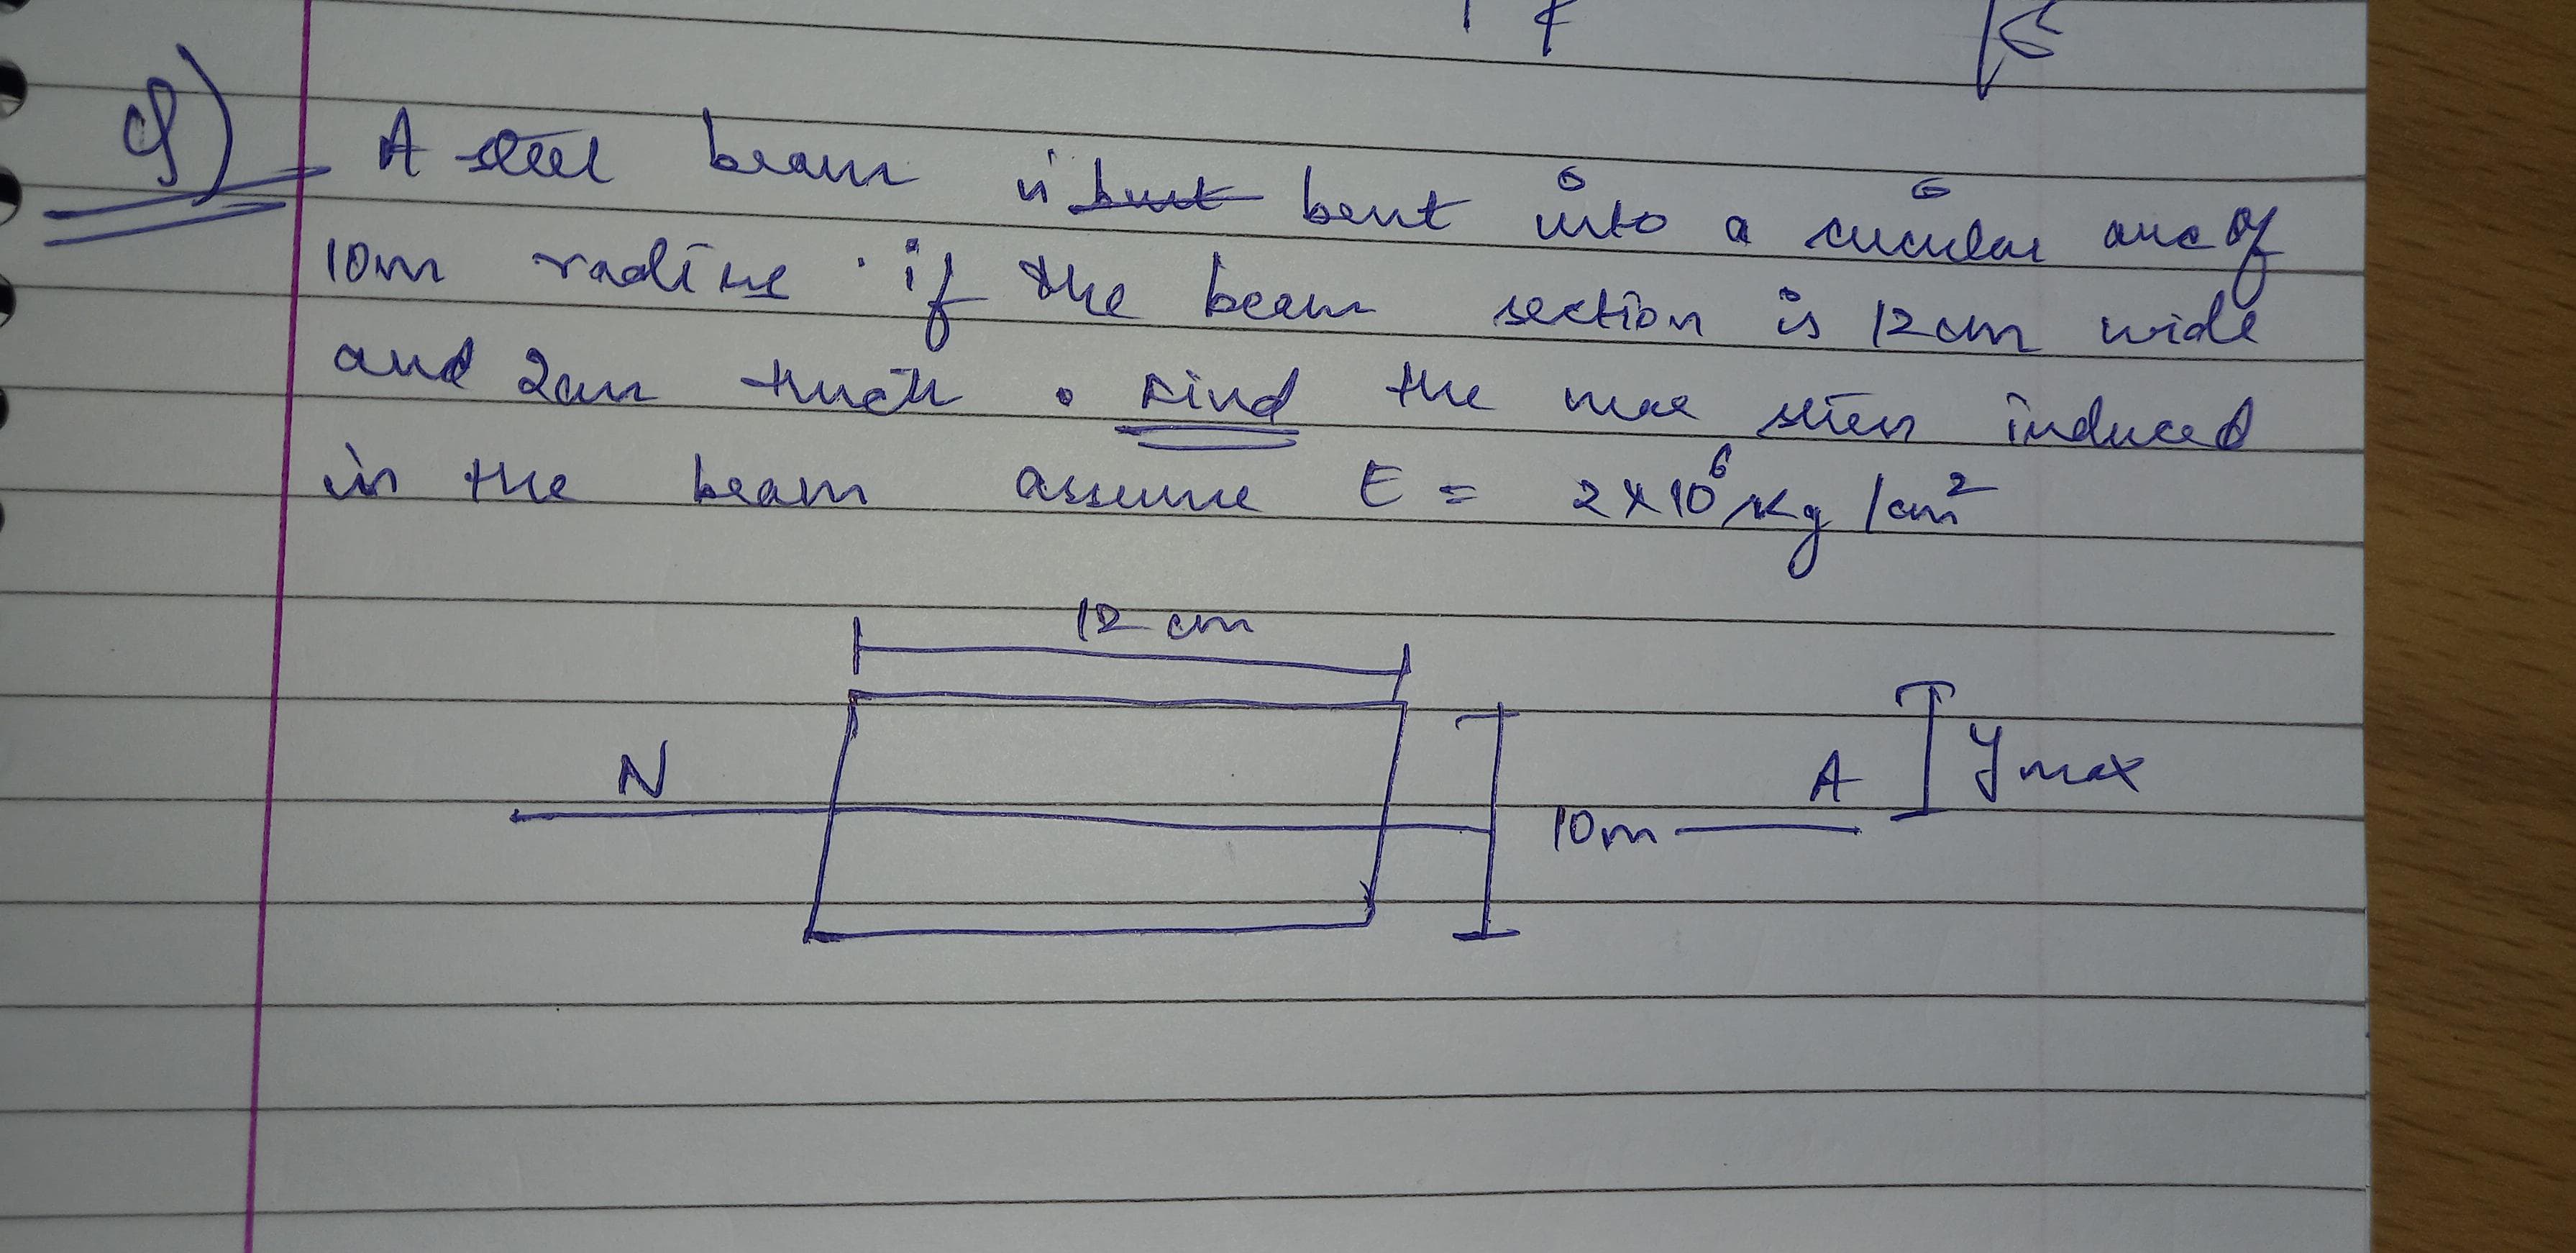 Q)
A steel beam is bent into a circular arc of
10m radius. if the beam section is 12cm wide
and 2cm thick. Find the max stress induced
in the beam assume E = 2×10⁶ Kg/cm²
12 cm
N
A
ymax
10m